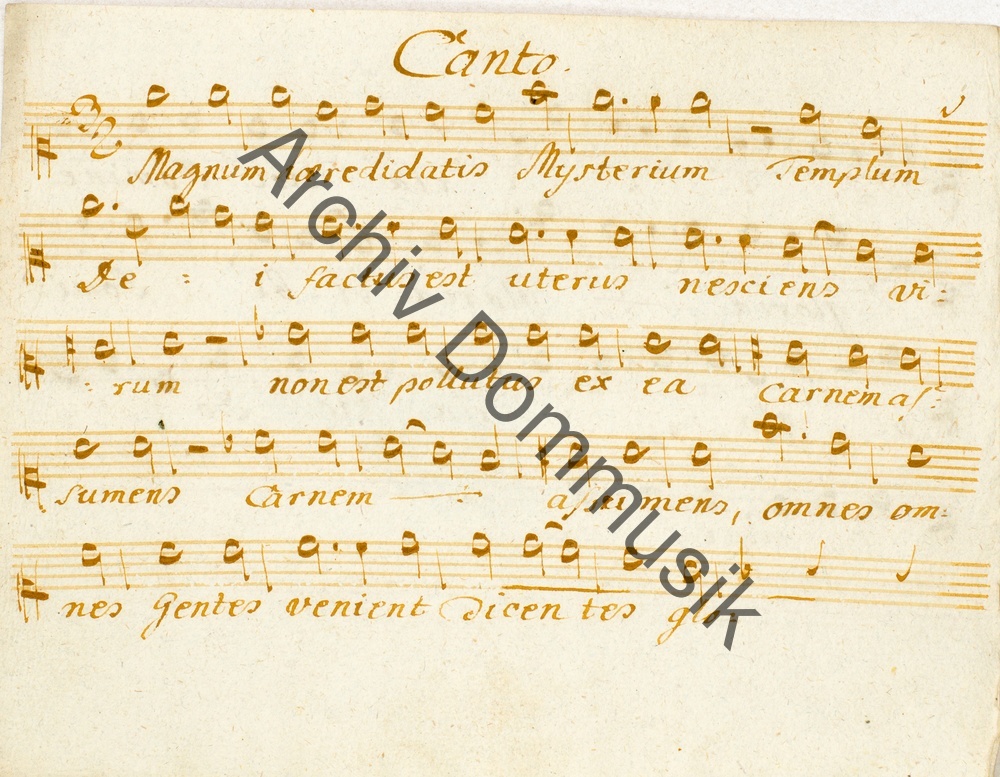 Canto.
Magnum haeredidatis Mysterium Templum
De : i factus est uterus nesciens vi :
: rum non est pollutus ex ea Carnem as :
sumens Carnem assumens, omnes om :
nes Gentes venient Dicen tes glo
Archiv Dommusik